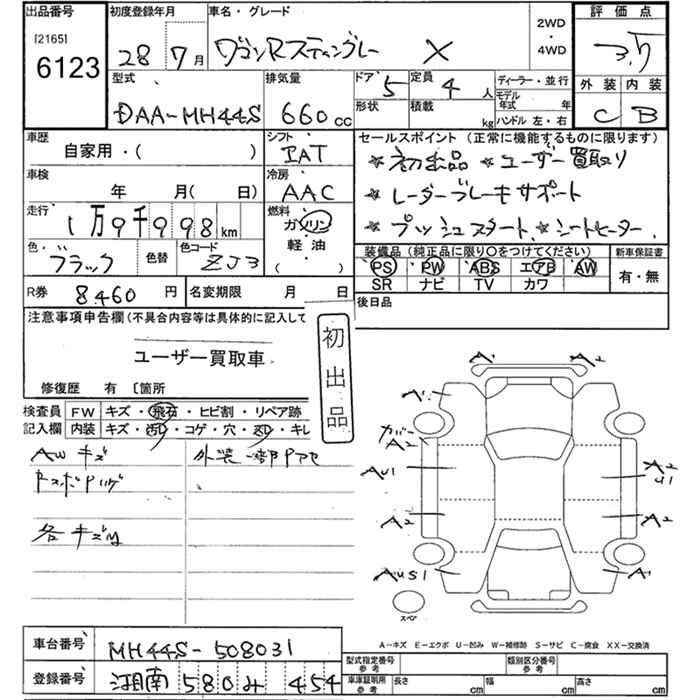 出品番号 初度登録年月 車名・グレード 2WD・4WD 評価点
[2165] 6123 28年 7月 ワゴンRスティングレー X 3.5
型式 排気量 ドア 定員 ディーラー・並行 外装 内装
DAA-MH44S 660cc 5 4人 モデル年式 年 C B
形状 積載 kg ハンドル 左・右
車歴 シフト セールスポイント (正常に機能するものに限ります)
自家用・( ) IAT ★初出品 ★ユーザー買取り
車検 冷房 ★レーダーブレーキサポート
年 月(日) AAC ★プッシュスタート ★シートヒーター
走行 燃料
1万9千998km ガソリン
色・ 色替 色コード 軽油
ブラック ZJ3 ( )
装備品(純正品に限り○をつけてください) 新車保証書
PS PW ABS エアB AW 有・無
SR ナビ TV カワ
R券 8460円 名変期限 月 日 後日品
注意事項申告欄(不具合内容等は具体的に記入して
ユーザー買取車
初出品
修復歴 有 〔箇所
検査員記入欄 FW キズ・飛石・ヒビ割・リペア跡
内装 キズ・汚レ・コゲ・穴・スレ・キレ
AWキズ 外装一部
各キズ
A1 A2
A1 A2
カバー A2
AU1 A2 U1
A2 A2
AUS1 A1
スペア
A-キズ E-エクボ U-凹み W-補修跡 S-サビ C-腐食 XX-交換済
車台番号 MH44S-508031
型式指定番号 参考 類別区分番号 参考
登録番号 湘南 580 み 454
車庫証明用 参考 長さ cm 幅 cm 高さ cm